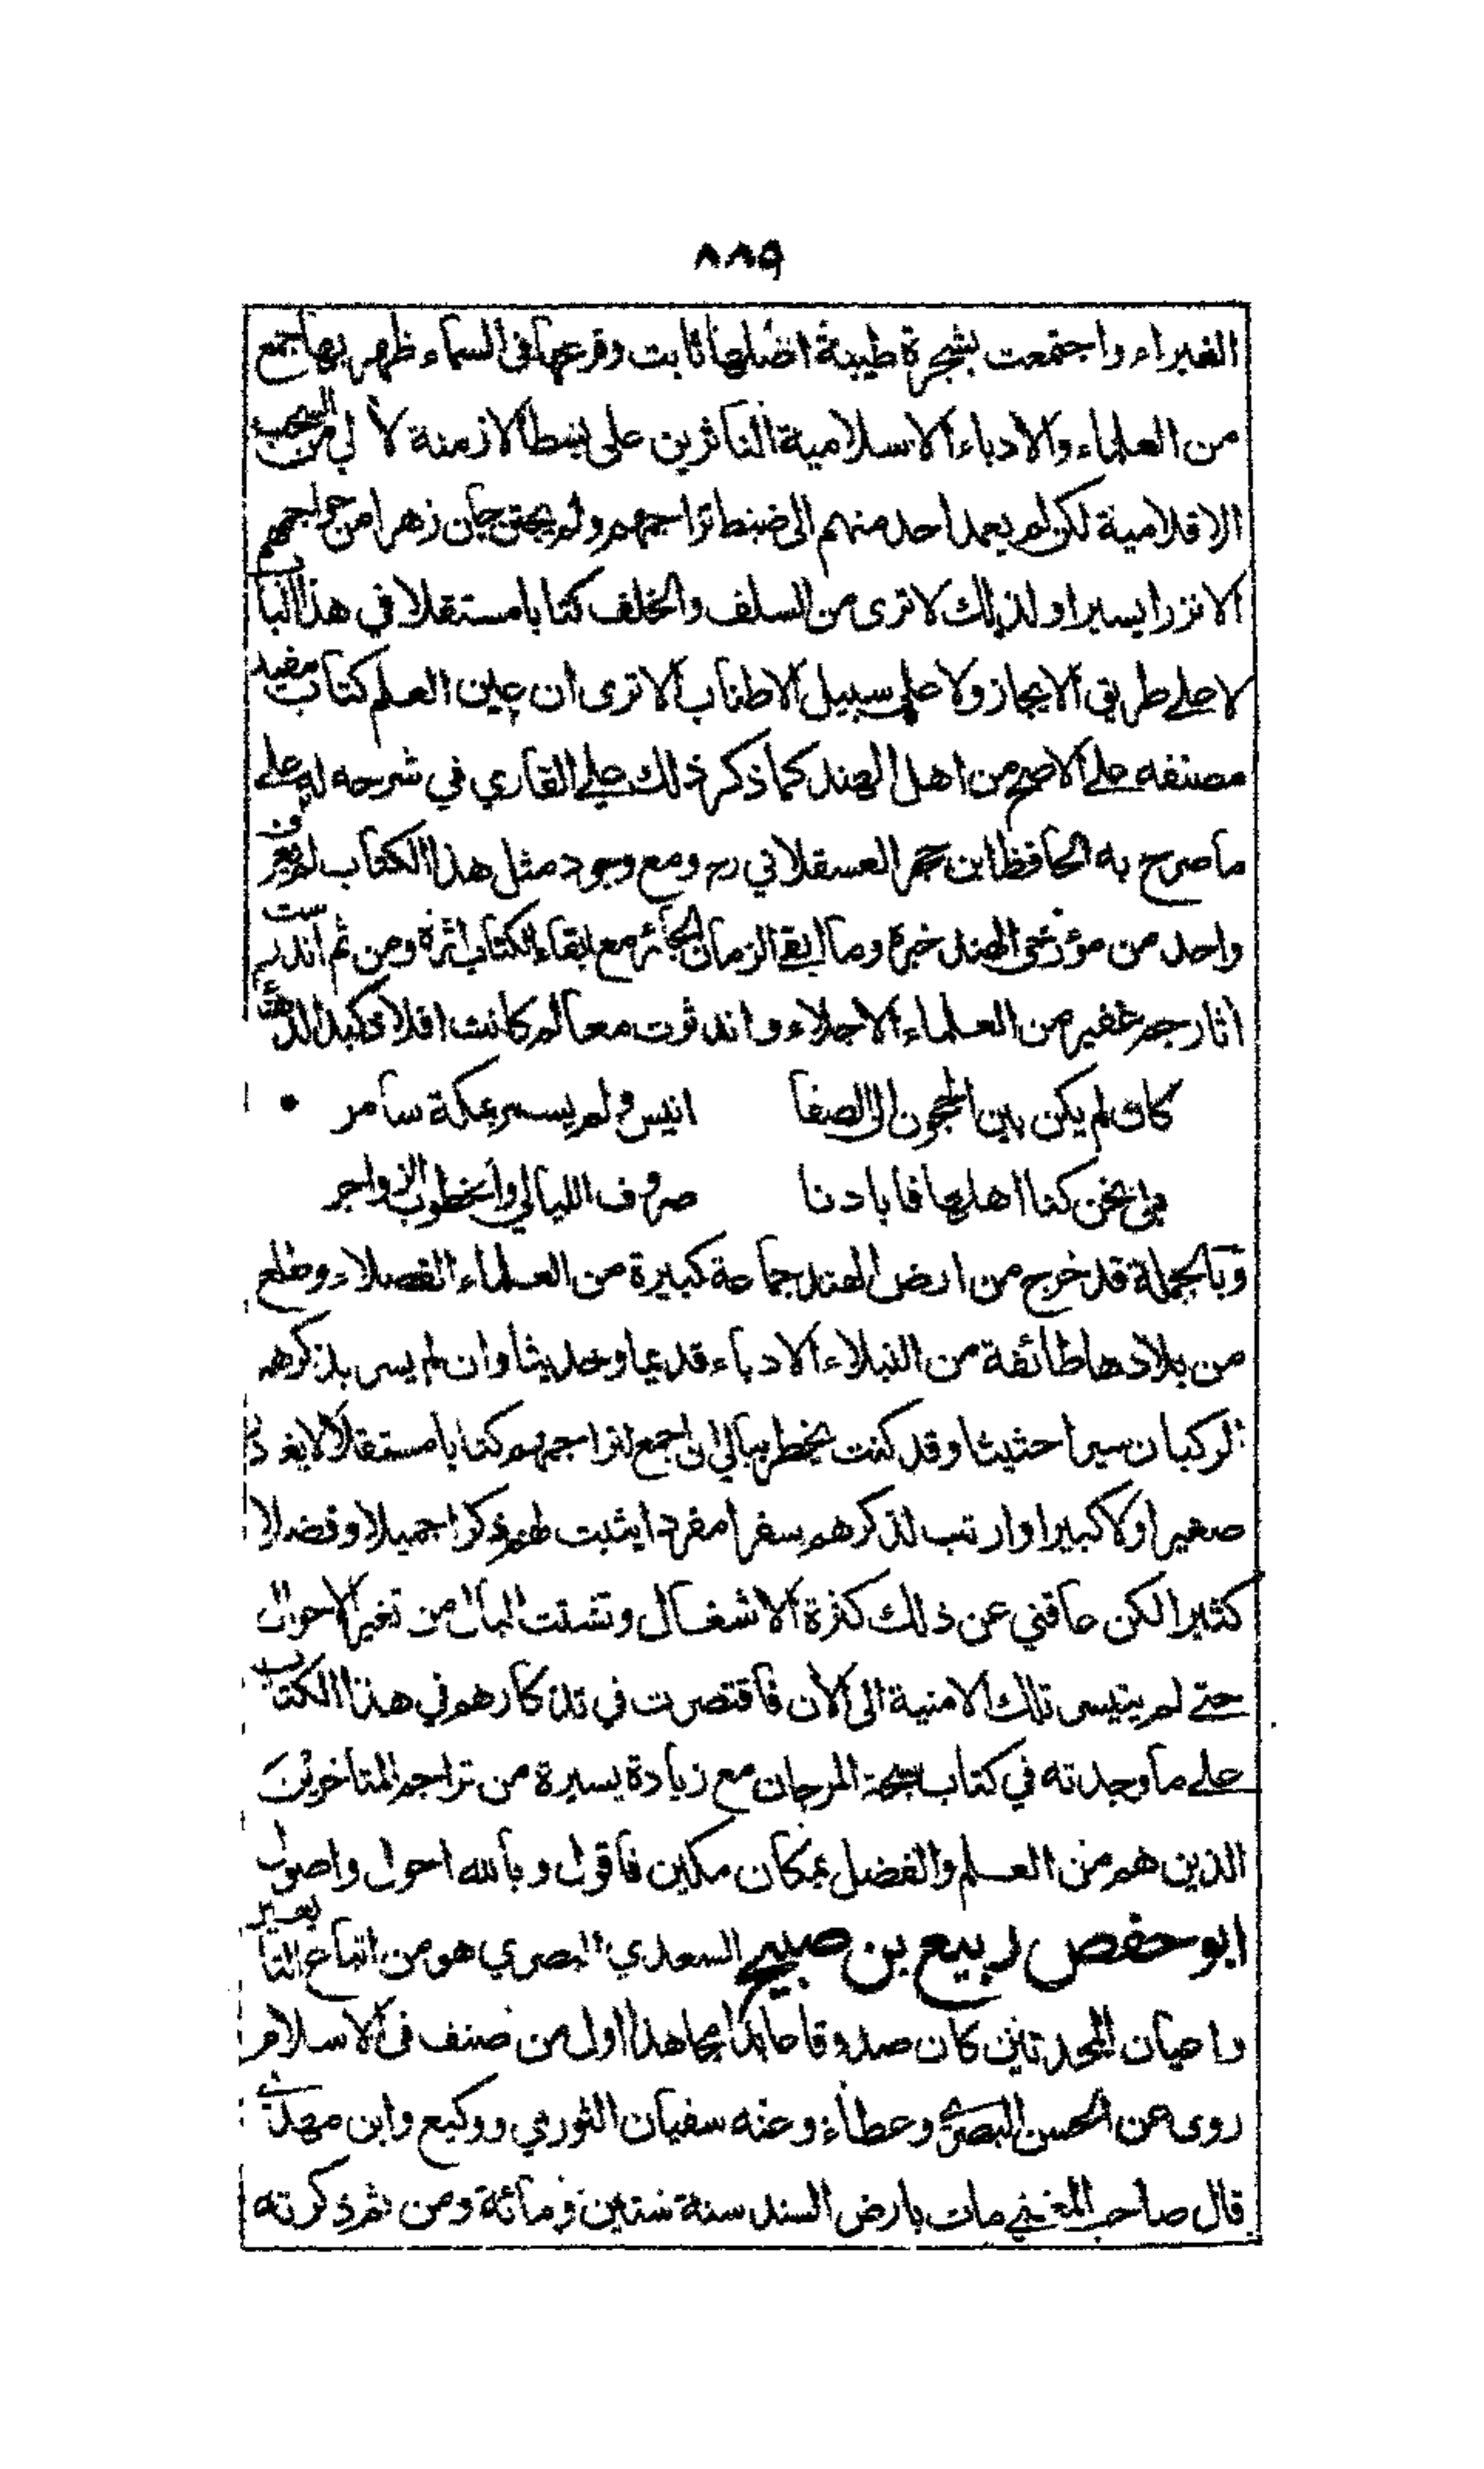 ٨٨٩
الغبراء واجتمعت بشجرة طيبة اصلها ثابت وفرعها في السماء ظهر بها جمع
من العلماء والادباء الاسلامية الناثرين على بسط الازمنة لآلي من السحب
الاقلامية لكن لم يعمد احد منهم الى ضبط تراجمهم ولم يجتن جان زهرا من
الا نزرا يسيرا ولذلك لا ترى من السلف والخلف كتابا مستقلا في هذا الباب
لا على طريق الايجاز ولا على سبيل الاطناب الا ترى ان عين العلم كتاب مفيد
مصنفه على الاصح من اهل الهند كما ذكر ذلك علي القاري في شرحه له على
ما صرح به الحافظ ابن حجر العسقلاني رح ومع وجود مثل هذا الكتاب لم يعرف
واحد من مؤرخي الهند خبره وما ابقى الزمان الجائر مع ابقاء الكتاب اثره ومن ثم اندرست
اثار جم غفير من العلماء الاجلاء واندثرت معالم كانت افلاذ كبد الدهناء
كان لم يكن بين الحجون الى الصفا انيس ولم يسمر بمكة سامر
بلى نحن كنا اهلها فابادنا صروف الليالي والخطوب الزواجر
وبالجملة قد خرج من ارض الهند جماعة كبيرة من العلماء الفضلاء وطلع
من بلادها طائفة من النبلاء الادباء قديما وحديثا وان لم يسر بذكرهم
الركبان سيرا حثيثا وقد كنت يخطر ببالي ان اجمع لتراجمهم كتابا مستقلا لا يغادر
صغيرا ولا كبيرا وارتب لذكرهم سفرا مفردا يثبت لهم ذكرا جميلا وفضلا
كثيرا لكن عاقني عن ذلك كثرة الاشغال وتشتت البال من تغير الاحوال
حتى لم يتيسر تلك الامنية الى الأن فاقتصرت في تذكارهم في هذا الكتاب
على ما وجدته في كتاب سبحة المرجان مع زيادة يسيرة من تراجم المتاخرين
الذين هم من العلم والفضل بمكان مكين فاقول وبالله احول واصول
ابو حفص ربيع بن صبيح السعدي البصري هو من اتباع التابعين
واعيان المحدثين كان صدوقا عابدا مجاهدا اول من صنف في الاسلام
روى عن الحسن البصري وعطاء وعنه سفيان الثوري ووكيع وابن مهدي
قال صاحب المغني مات بارض السند سنة ستين ومائة ومن ثم ذكرته